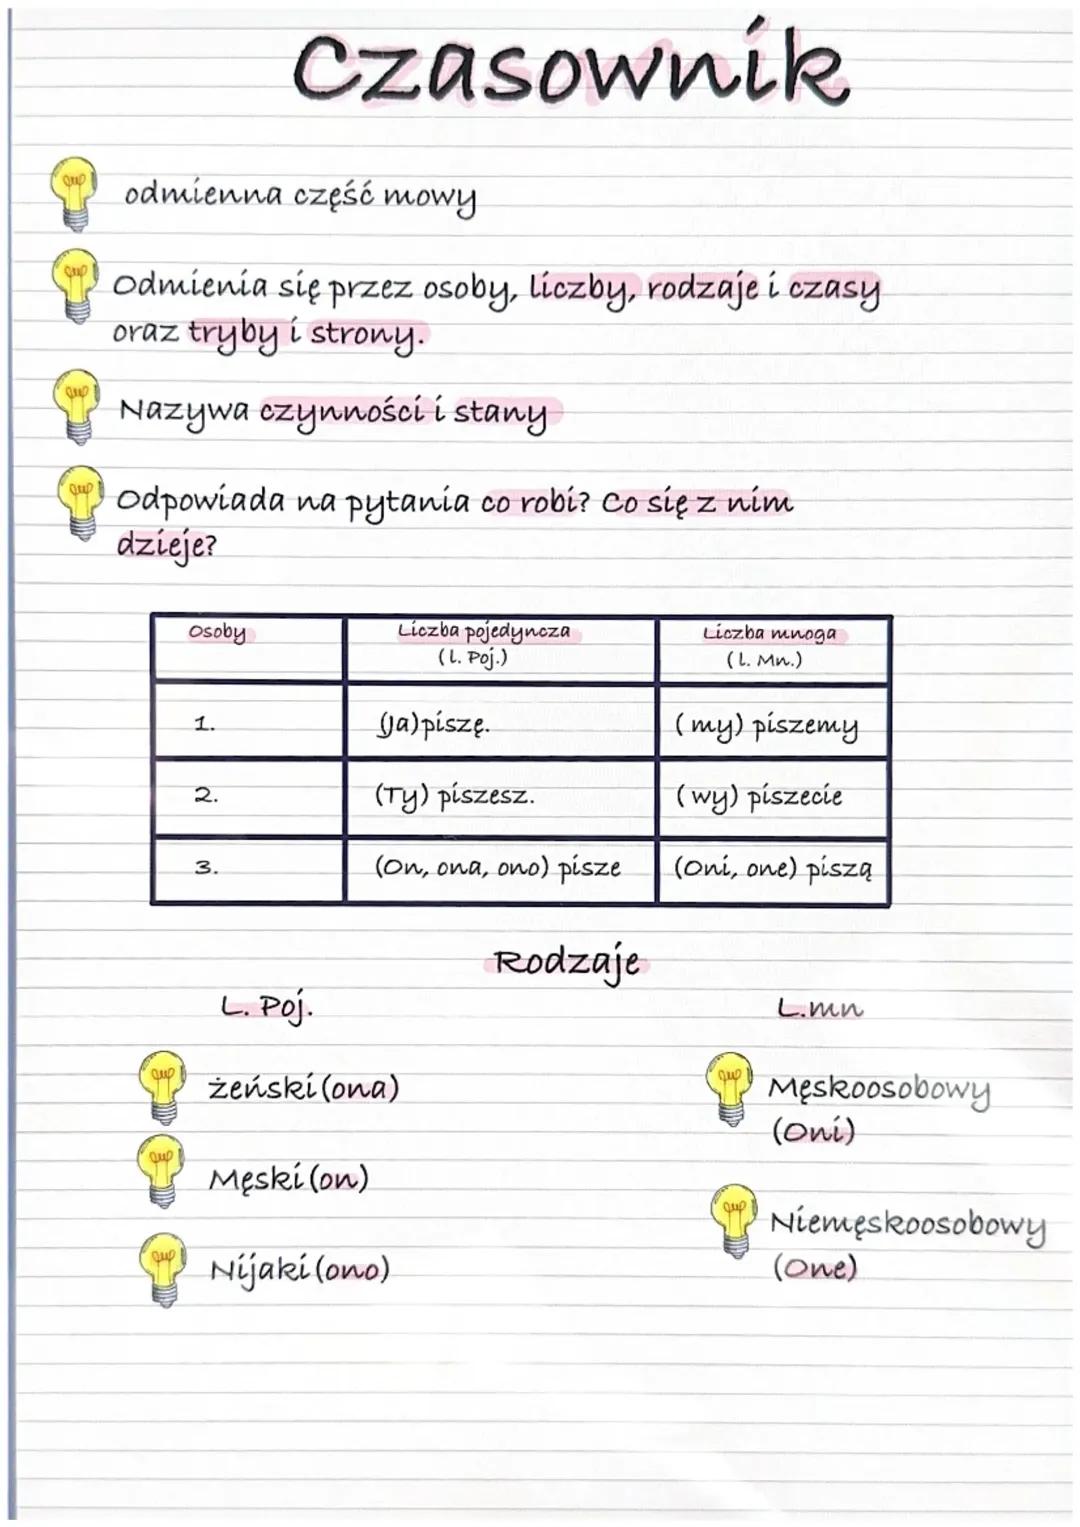 Czasownik
odmienna część mowy
Odmienia się przez osoby, liczby, rodzaje i czasy
oraz tryby i strony.
Nazywa czynności i stany
Odpowiada na pytania co robi? Co się z nim
dzieje?
Osoby Liczba pojedyncza Liczba mnoga
(l. Poj.) (l. Mn.)
1. (Ja) piszę. (my) piszemy
2. (Ty) piszesz. (wy) piszecie
3. (On, ona, ono) pisze (Oni, one) piszą
Rodzaje
L. Poj. L.mn
żeński (ona) Męskoosobowy
(Oni)
Męski (on)
Niemęskoosobowy
Nijaki (ono) (One)